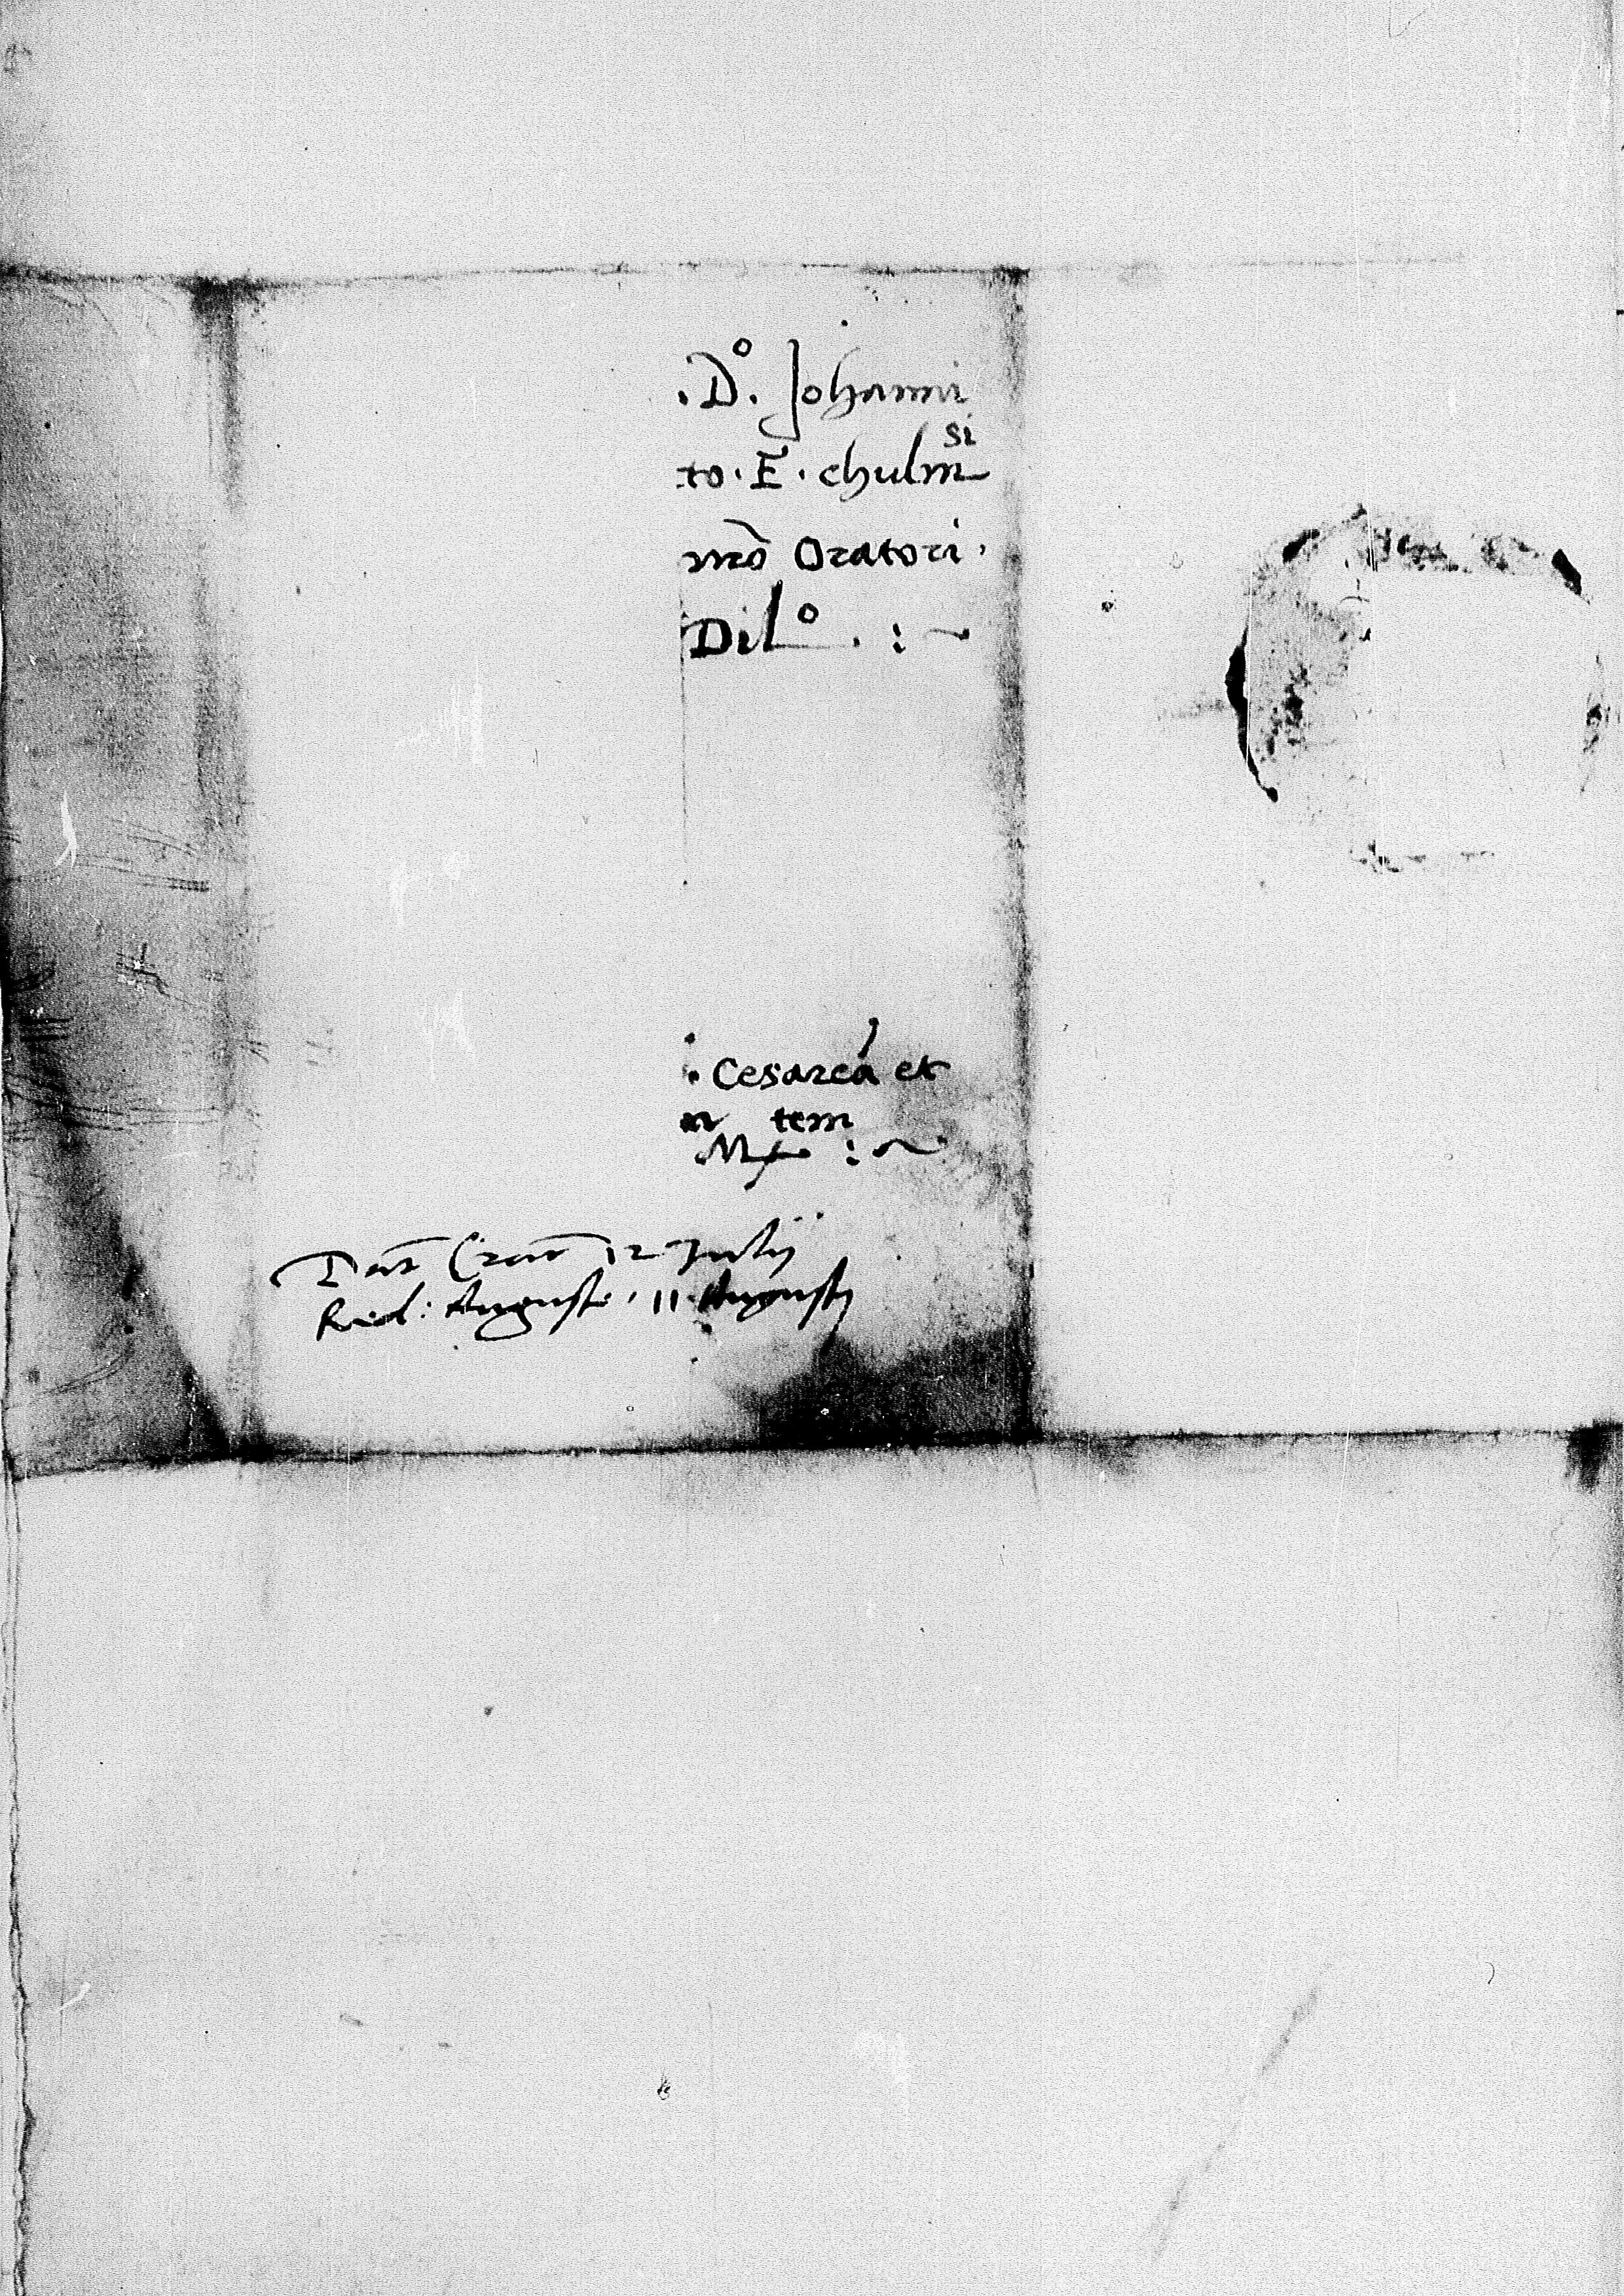 .Dº. Johanni
to. E. chulmsi
nrõ Oratori.
Dilº. :~
. Cesareá et
tem
M :~
Dat Crac 12 Julij
Red: Auguste, 11 Augustj